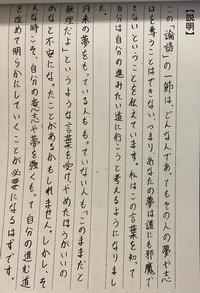 【説明】
この「論語」の一節は、どんな人であってもその人の夢や志
は奪うことはできない。つまりあなたの夢は誰にも邪魔で
きないということを伝えています。私はこの言葉を知って
自分は自分の進みたい道に行こうと考えるようになりまし
た。
将来の夢をもっている人ももっていない人も「このままだと
無理だよ」というような言葉を受け、やめたほうがいいの
かなと不安になったことがあるかもしれません。しかし、そ
んな時こそ、自分の意志や夢を強くもって自分の進む道
を改めて明らかにしていくことが必要になるはずです。